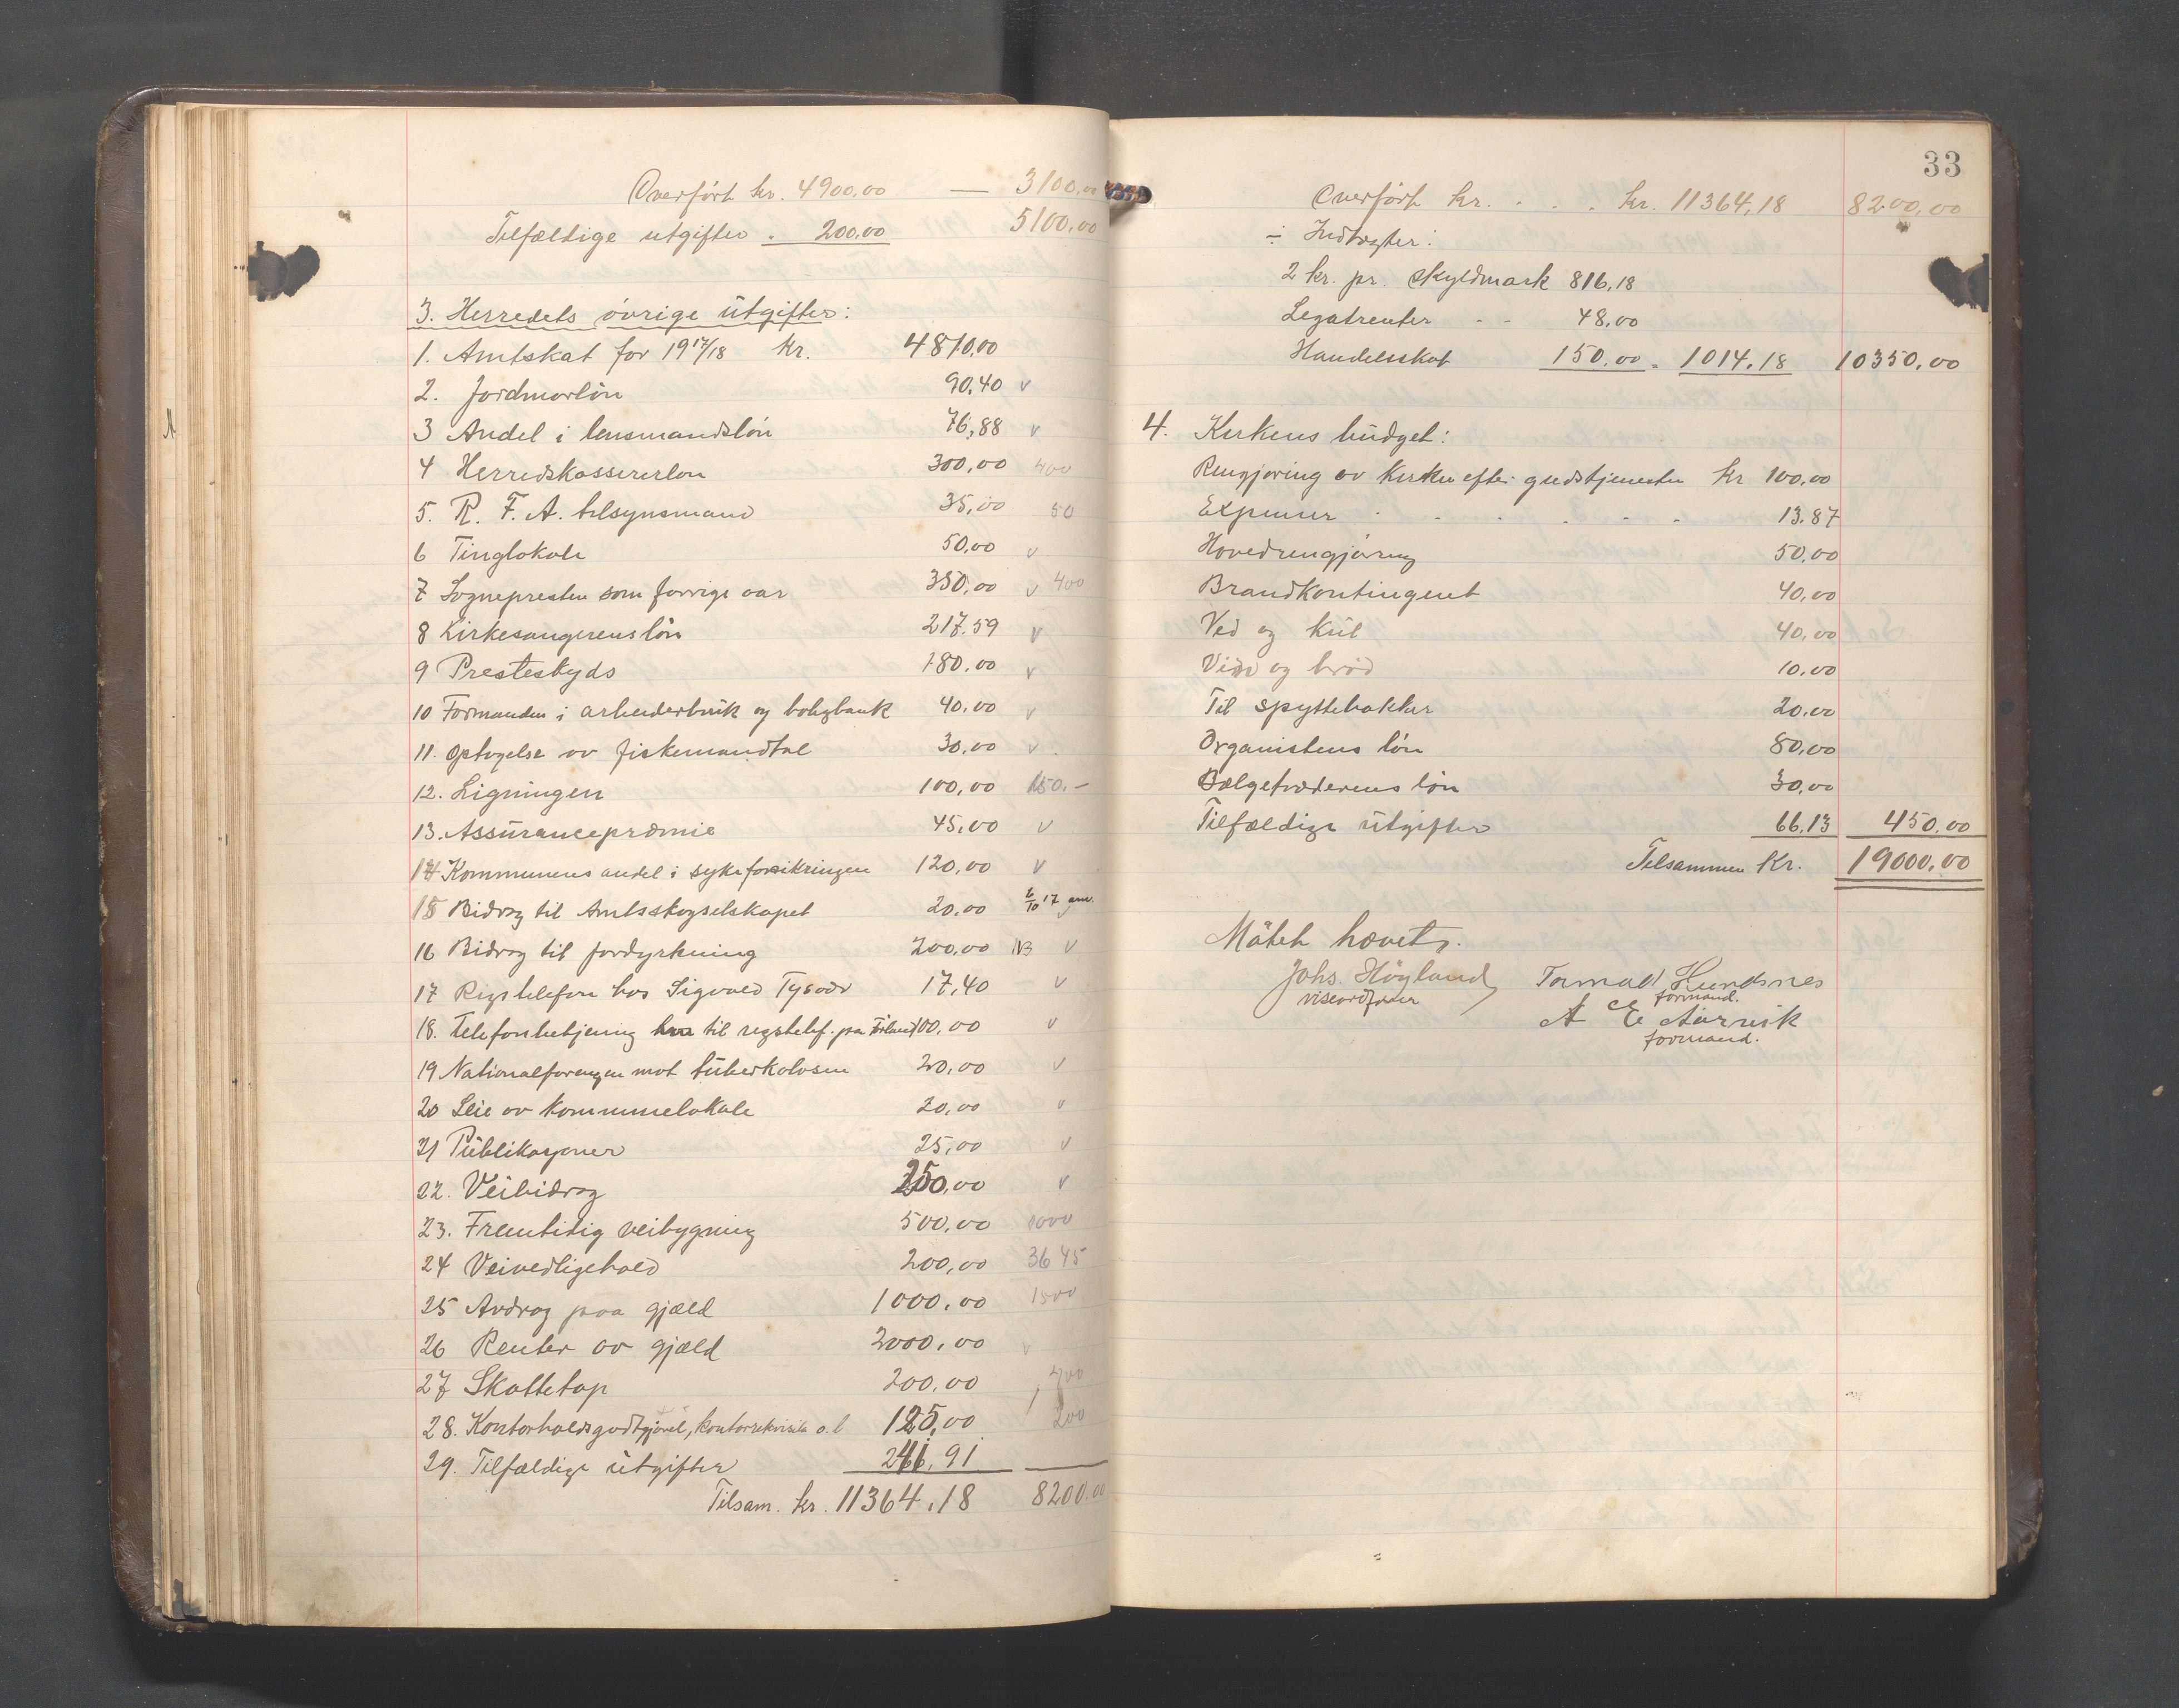 Overfört kr. 4900,00 — 3100,00
Tilfældige utgifter . 200,00 5100,00
3. Herredets övrige utgifter:
1. Amtskat for 1917/18 kr. 4810,00
2. Jordmorlön 90,40 v
3 Andel i lensmandslön 76,88 v
4 Herredskassererlön 300,00 400
5. R. F. A. tilsynsmand 35,00 50
6 Tinglokale 50,00 v
7 Sognepresten som forrige aar 350,00 v 400
8 Kirkesangerens lön 217.59 v
9 Presteskyds 180,00 v
10 Formanden i arbeiderbruk og boligbank 40,00 v
11. Optagelse av fiskemandtal 30,00 v
12. Ligningen 100,00 150.-
13. Assurancepræmie 45,00 v
14 Kommunens andel i sykeforsikringen 120,00 v
15 Bidrag til Amtsskogselskapet 20,00 6/10 17 anv.
16 Bidrag til jorddyrkning 200,00 NB v
17 Rigstelefon hos Sigvald Tysvær 17,40 v
18. Telefonbetjening til rigstelef. paa 100,00 v
19 Nationalforengen mot tuberkolosen 20,00 v
20 Leie av kommunelokale 20,00 v
21 Publikasjoner 25,00 v
22. Veibidrag 250,00 v
23. Fremtidig veibygning 500,00 1000
24 Veivedligehold 200,00 3645
25 Avdrag paa gjæld 1000,00 1500
26 Renter av gjæld 2000,00 v
27 Skattetap 200,00 400
28. Kontorholdsgodtgjörel, kontorrekvisita o.l 125,00 200
29. Tilfældige utgifter 246,91
Tilsam. kr. 11364,18 8200.00
33
Overfört kr. . . . kr. 11364,18 8200,00
÷ Indtægter:
2 kr. pr. skyldmark 816,18
Legatrenter - - 48,00
Handelsskat 150,00 - 1014,18 10350,00
4. Kirkens budget:
Rengjöring av kirken efter gudstjenesten kr 100,00
Expenser - - - - - - 13.87
Hovedrengjöring 50,00
Brandkontingent 40,00
Ved og kul 40,00
Vin og bröd 10,00
Til spyttebakker 20,00
Organistens lön 80,00
Bælgetræderens lön 30,00
Tilfældige utgifter 66.13 450.00
Tilsammen Kr. 19000,00
Mötet hævet.
Johs. Höyland Tormod Hundsnes
viseordförer formand.
A E Aarvik
formand.